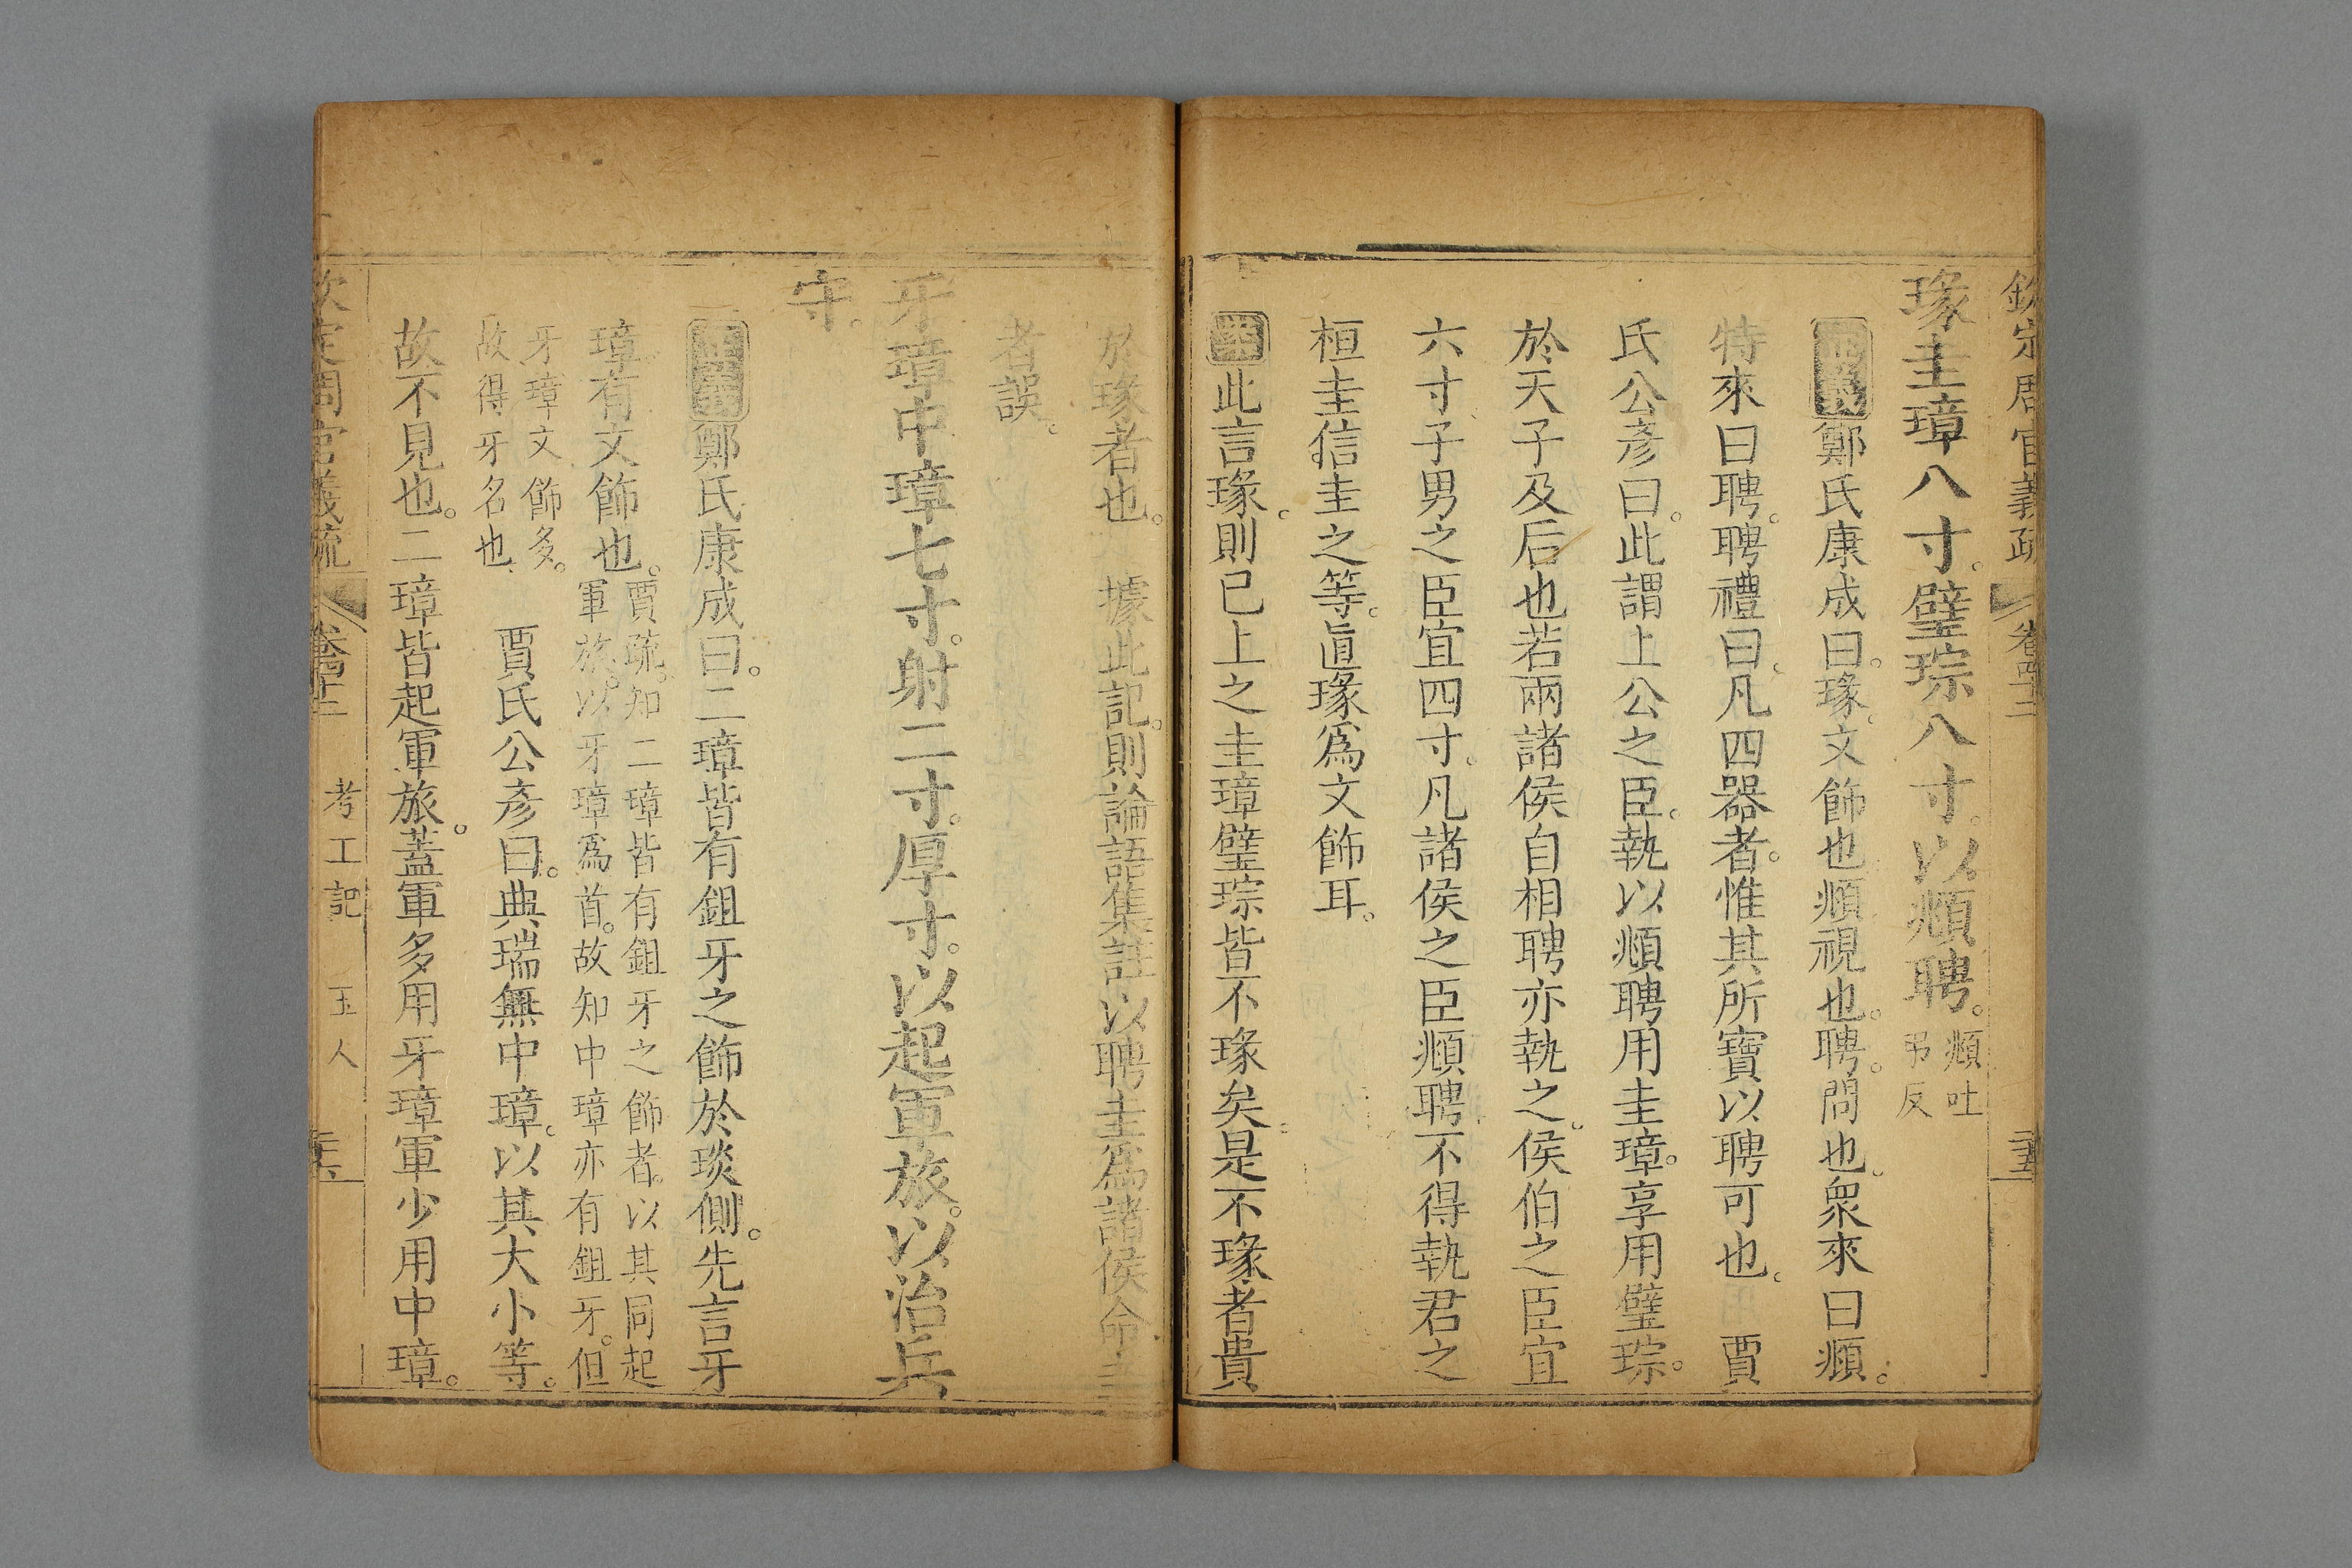 欽定周官義疏 卷四十二 二十五
瑑圭璋八寸。璧琮八寸。以頫聘。頫吐弔反
正義鄭氏康成曰。瑑文飾也。頫視也。聘。問也。眾來曰頫。
特來曰聘。聘禮曰。凡四器者。惟其所寶以聘可也。 賈
氏公彥曰。此謂上公之臣。執以頫聘用圭璋。享用璧琮。
於天子及后也若兩諸侯自相聘亦執之。侯伯之臣宜
六寸子男之臣宜四寸。凡諸侯之臣頫聘不得執君之
桓圭信圭之等。直瑑為文飾耳。
案此言瑑。則已上之圭璋璧琮皆不瑑矣。是不瑑者貴
於瑑者也。 據此記。則論語集註以聘圭為諸侯命圭
者誤。
牙璋中璋七寸。射二寸。厚寸。以起軍旅。以治兵
守。
正義鄭氏康成曰。二璋皆有鉏牙之飾於琰側。先言牙
璋。有文飾也。賈疏。知二璋皆有鉏牙之飾者。以其同起軍旅。以牙璋為首。故知中璋亦有鉏牙。但
牙璋文飾多。故得牙名也。 賈氏公彥曰。典瑞無中璋。以其大小等。
故不見也。二璋皆起軍旅。蓋軍多用牙璋軍少用中璋。
欽定周官義疏 卷四十二 考工記 玉人